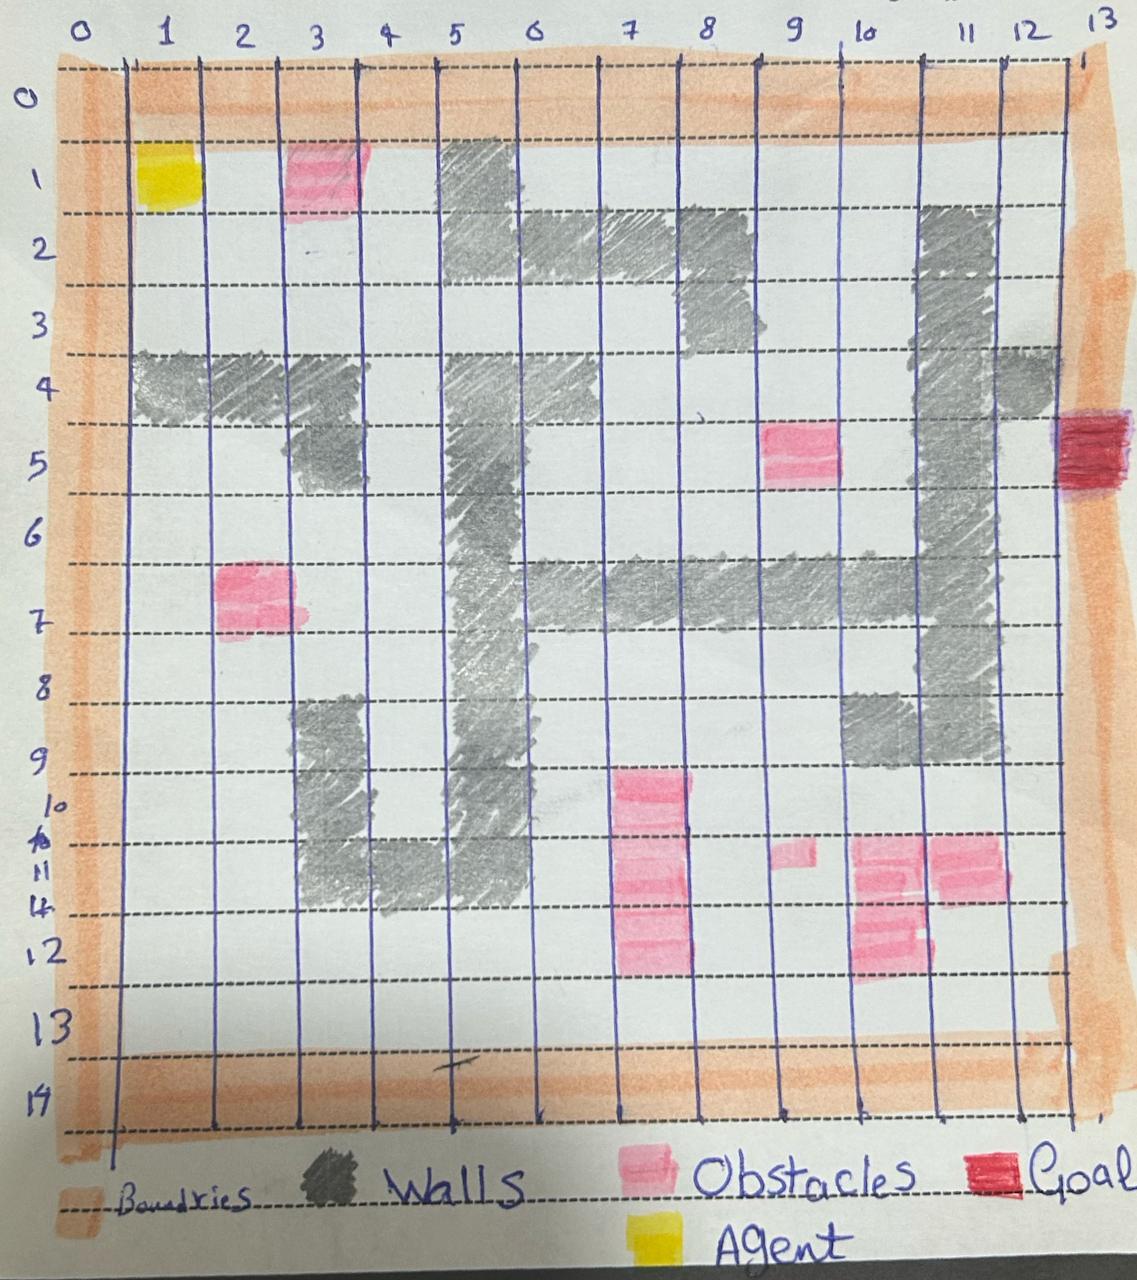 0 1 2 3 4 5 6 7 8 9 10 11 12 13
0
1
2
3
4
5
6
7
8
9
10
11
12
13
14
Boundries Walls Obstacles Goal
Agent